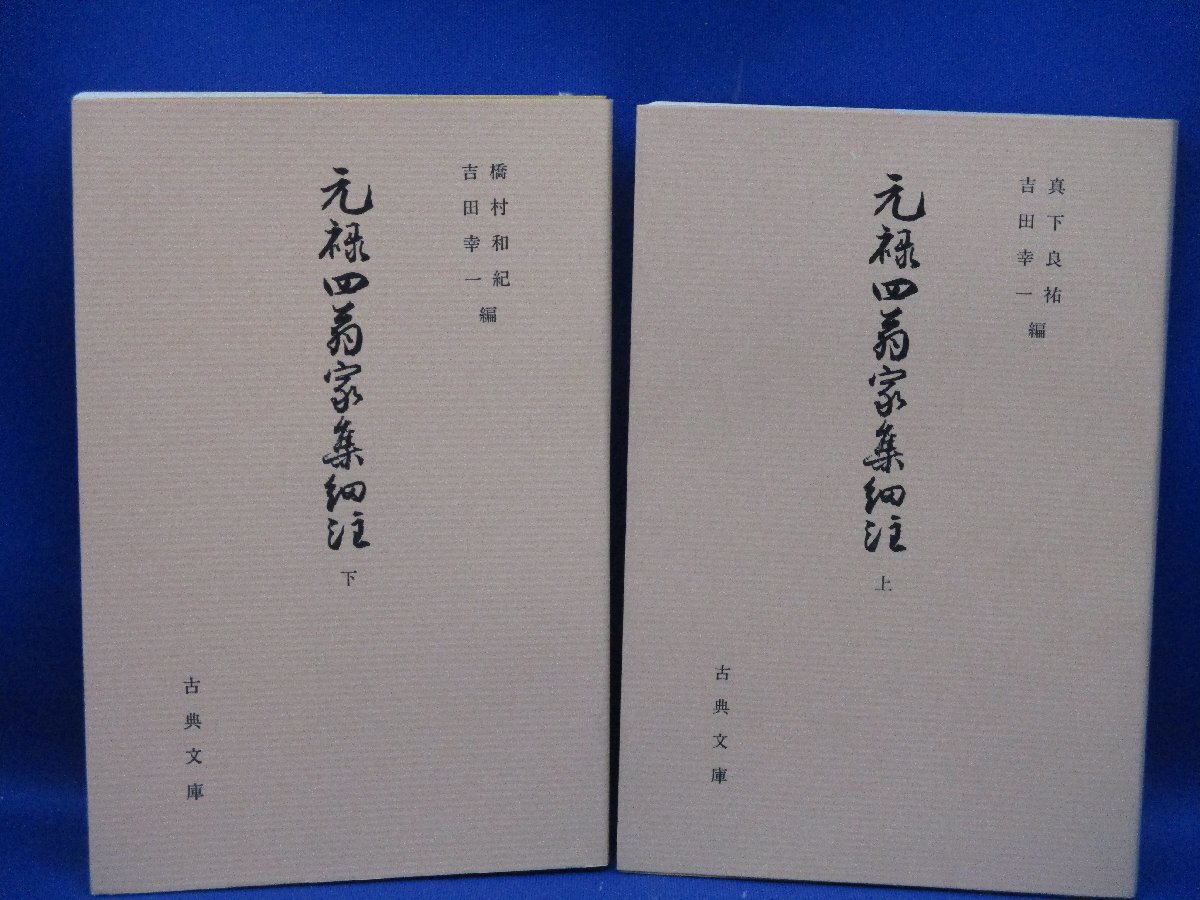 橋村和紀
吉田幸一
編
元禄四翁家集細注
下
古典文庫
真下良祐
吉田幸一
編
元禄四翁家集細注
上
古典文庫